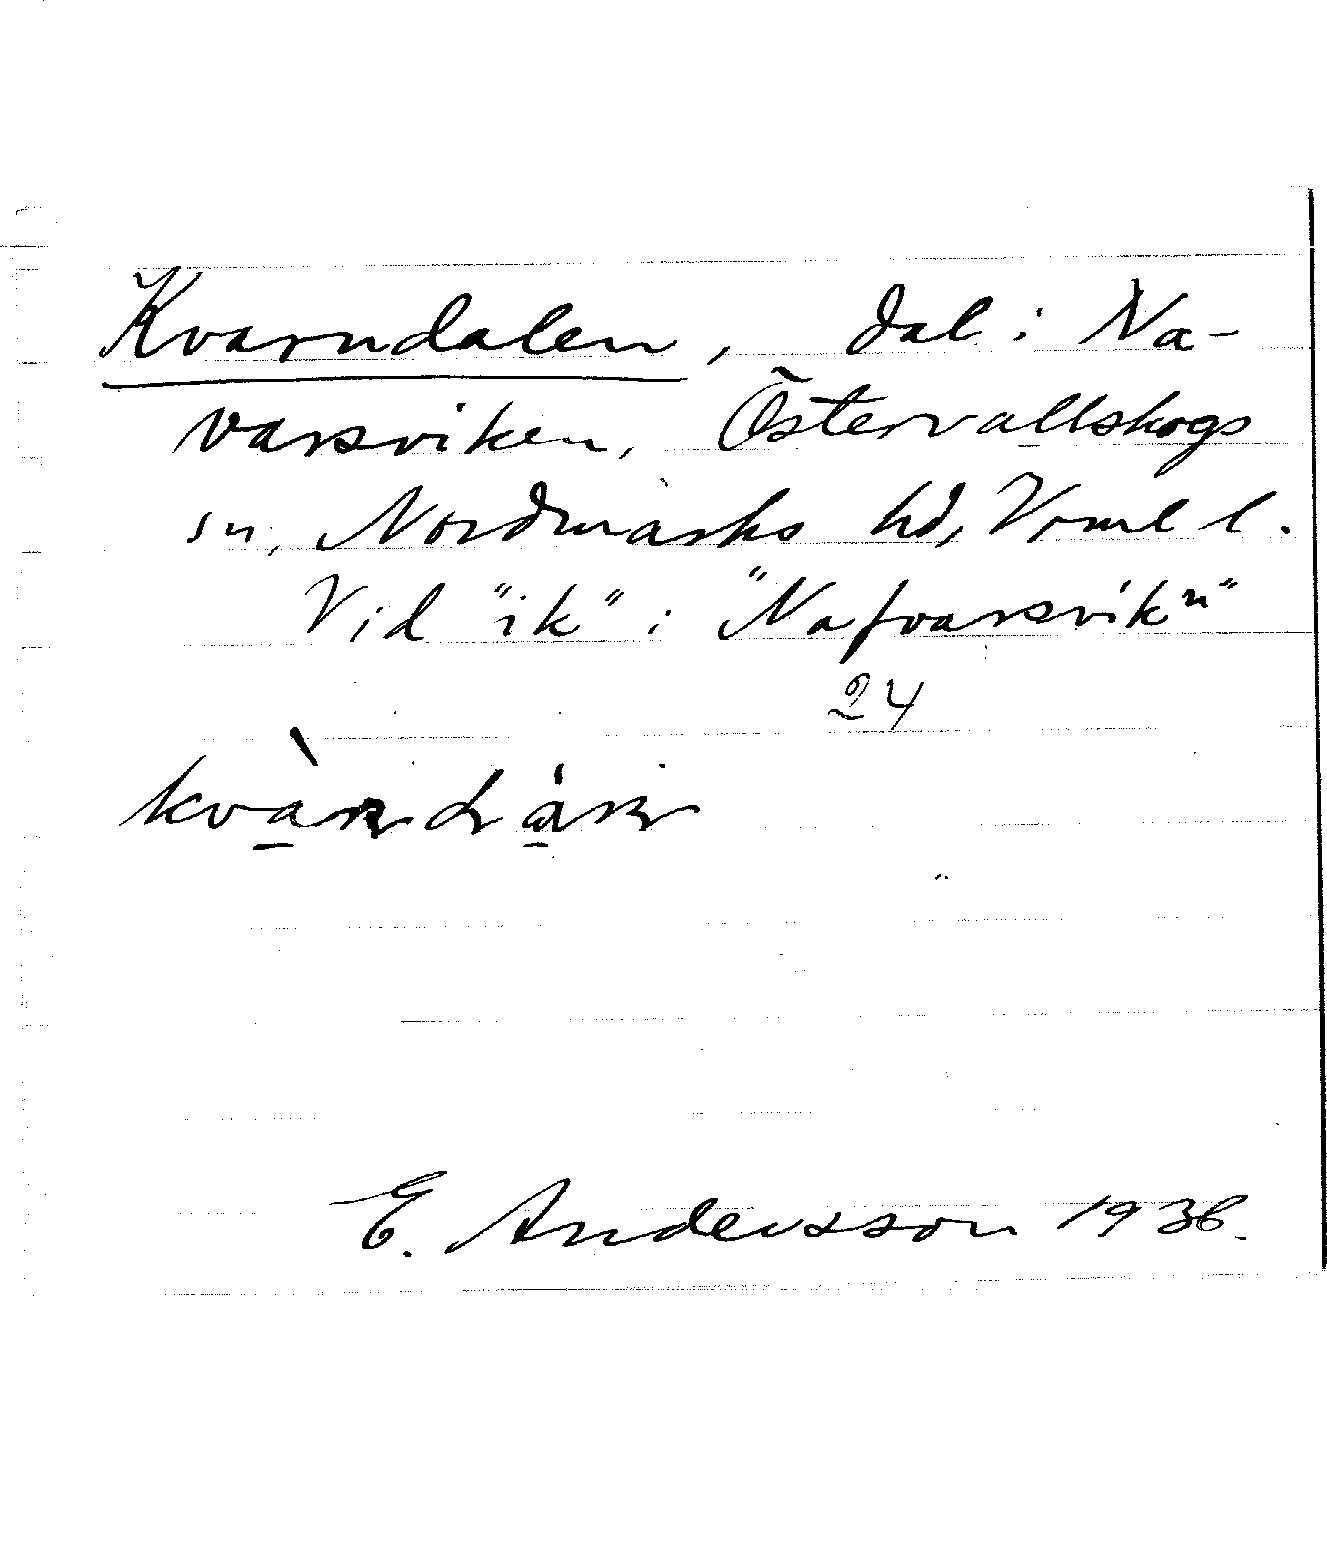 Kvarndalen, dal i Na-
varsviken, Östervallskogs
sn, Nordmarks hd, Vrml l.
Vid "ik" i "Nafvarsvikn"
24
E. Andersson 1938.